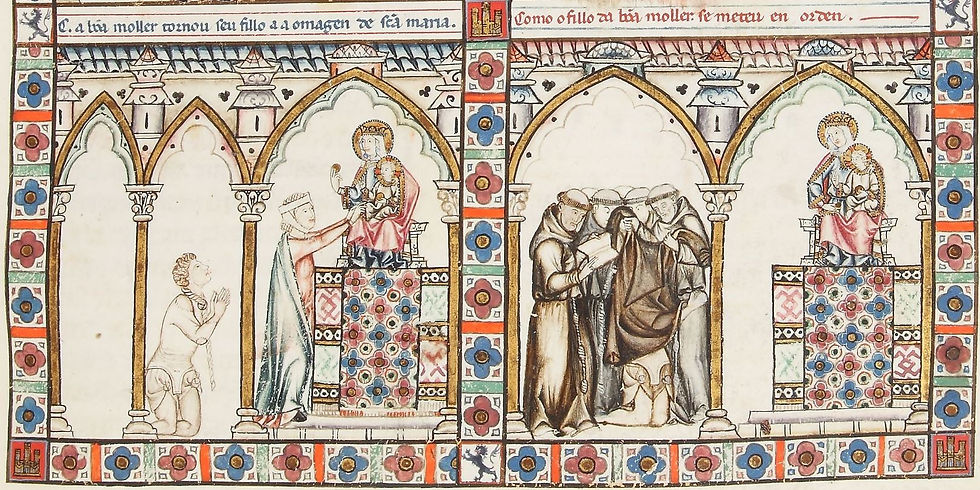 C. a bõa moller tornou seu fillo a a omagen de sc̃a maria.
Como o fillo da bõa moller. se meteu en orden.